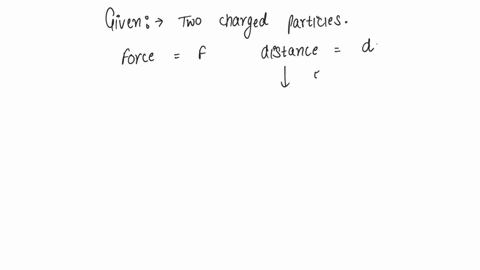 Given:→ Two charged particles.
force = F distance = d
↓